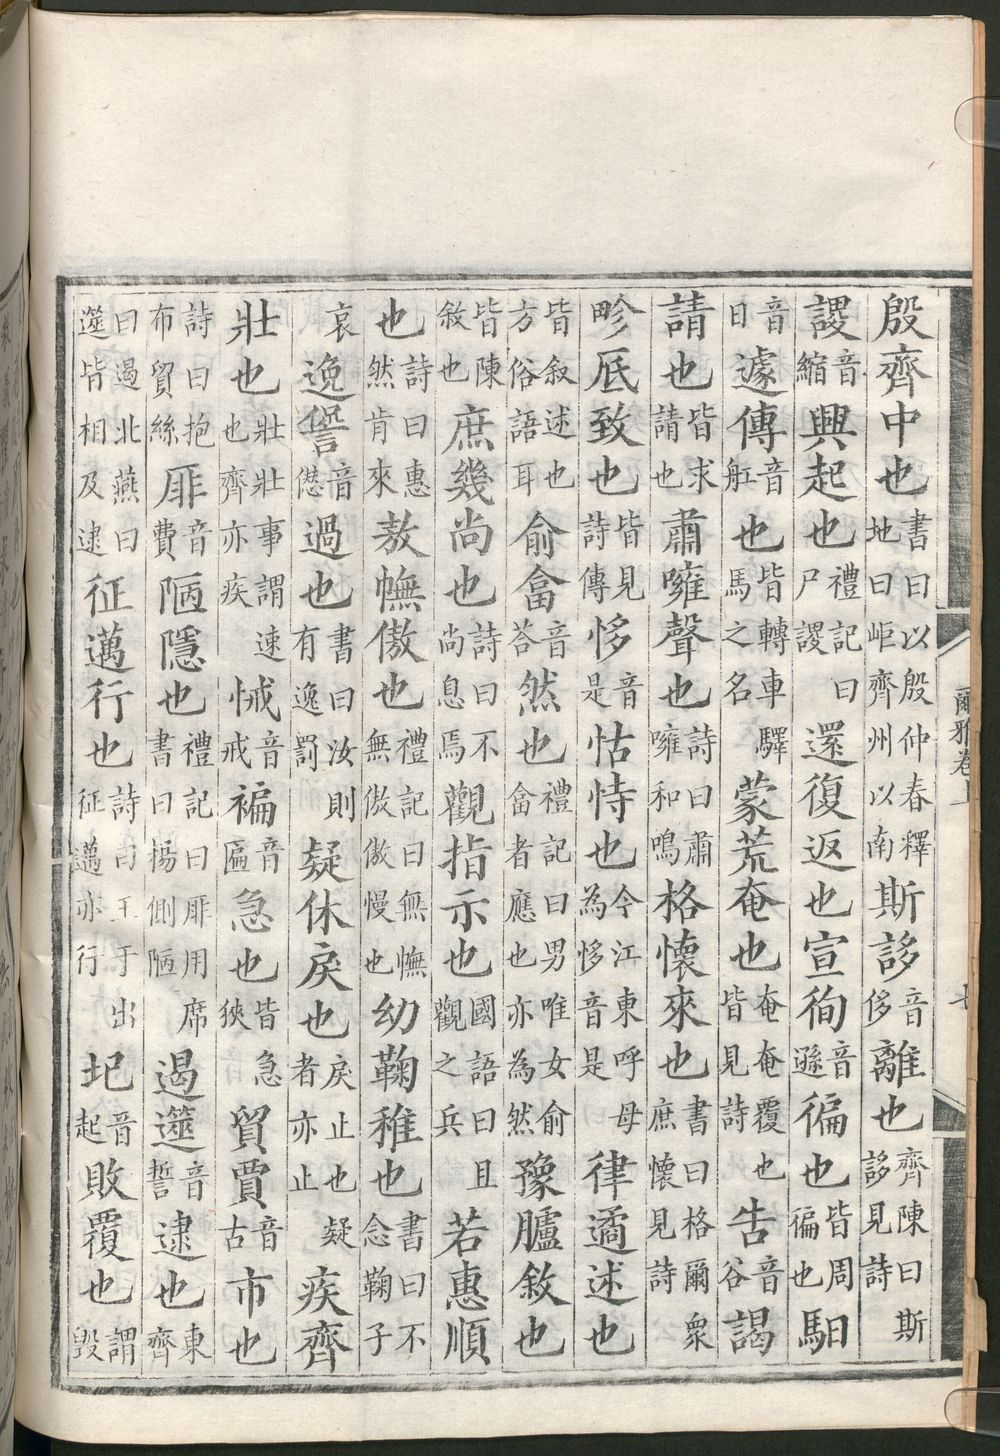 殷齊中也書曰以殷仲春釋地曰岠齊州以南斯誃音侈離也齊陳曰斯誃見詩
謖音縮興起也禮記曰尸謖還復返也宣徇音遜徧也皆周徧也馹
音日遽傳音舡也皆轉車驛馬之名蒙荒奄也奄奄覆也皆見詩告音谷謁
請也皆求請也肅噰聲也詩曰肅噰和鳴格懷來也書曰格爾眾庶懷見詩
畛厎致也皆見詩傳恀音是怙恃也今江東呼母為恀音是律遹述也
皆叙述也方俗語耳俞畣音荅然也禮記曰男唯女俞畣者應也亦為然豫臚敘也
皆陳敘也庶幾尚也詩曰不尚息焉觀指示也國語曰且觀之兵若惠順
也詩曰惠然肯來敖幠傲也禮記曰無幠無傲傲慢也幼鞠稚也書曰不念鞠子
哀逸諐音愆過也書曰汝則有逸罰疑休戾也戾止也疑者亦止疾齊
壯也壯壯事謂速也齊亦疾悈音戒褊音匾急也皆急狹貿賈音古市也
詩曰抱布貿絲厞音費陋隱也禮記曰厞用席書曰楊側陋遏遾音誓逮也東齊
曰遏北燕曰遾皆相及逮征邁行也詩曰王于出征邁亦行圮音起敗覆也謂毀
爾雅卷上
七